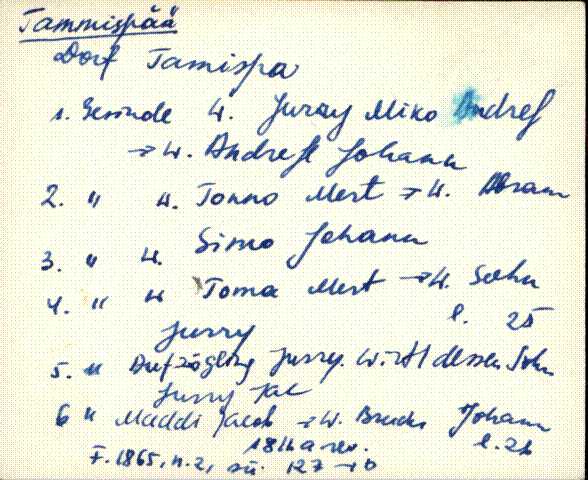 Tammispää
Dorf Tamispa
1. Gesinde W. Jurry Miko Andres
→ W. Andres Johann
2. " W. Tonno Mert → W. Abram
3. " W. Simo Johann
4. " W Toma Mert → W. Sohn
Jurry l. 25
5. " Aufzögling Jurry. Wirt dessen Sohn
Jurry Jac
6 " Maddi Jacob → W. Bruder Johann
1816 a rev. l. 26
F. 1865, n. 2, sü. 127 → p